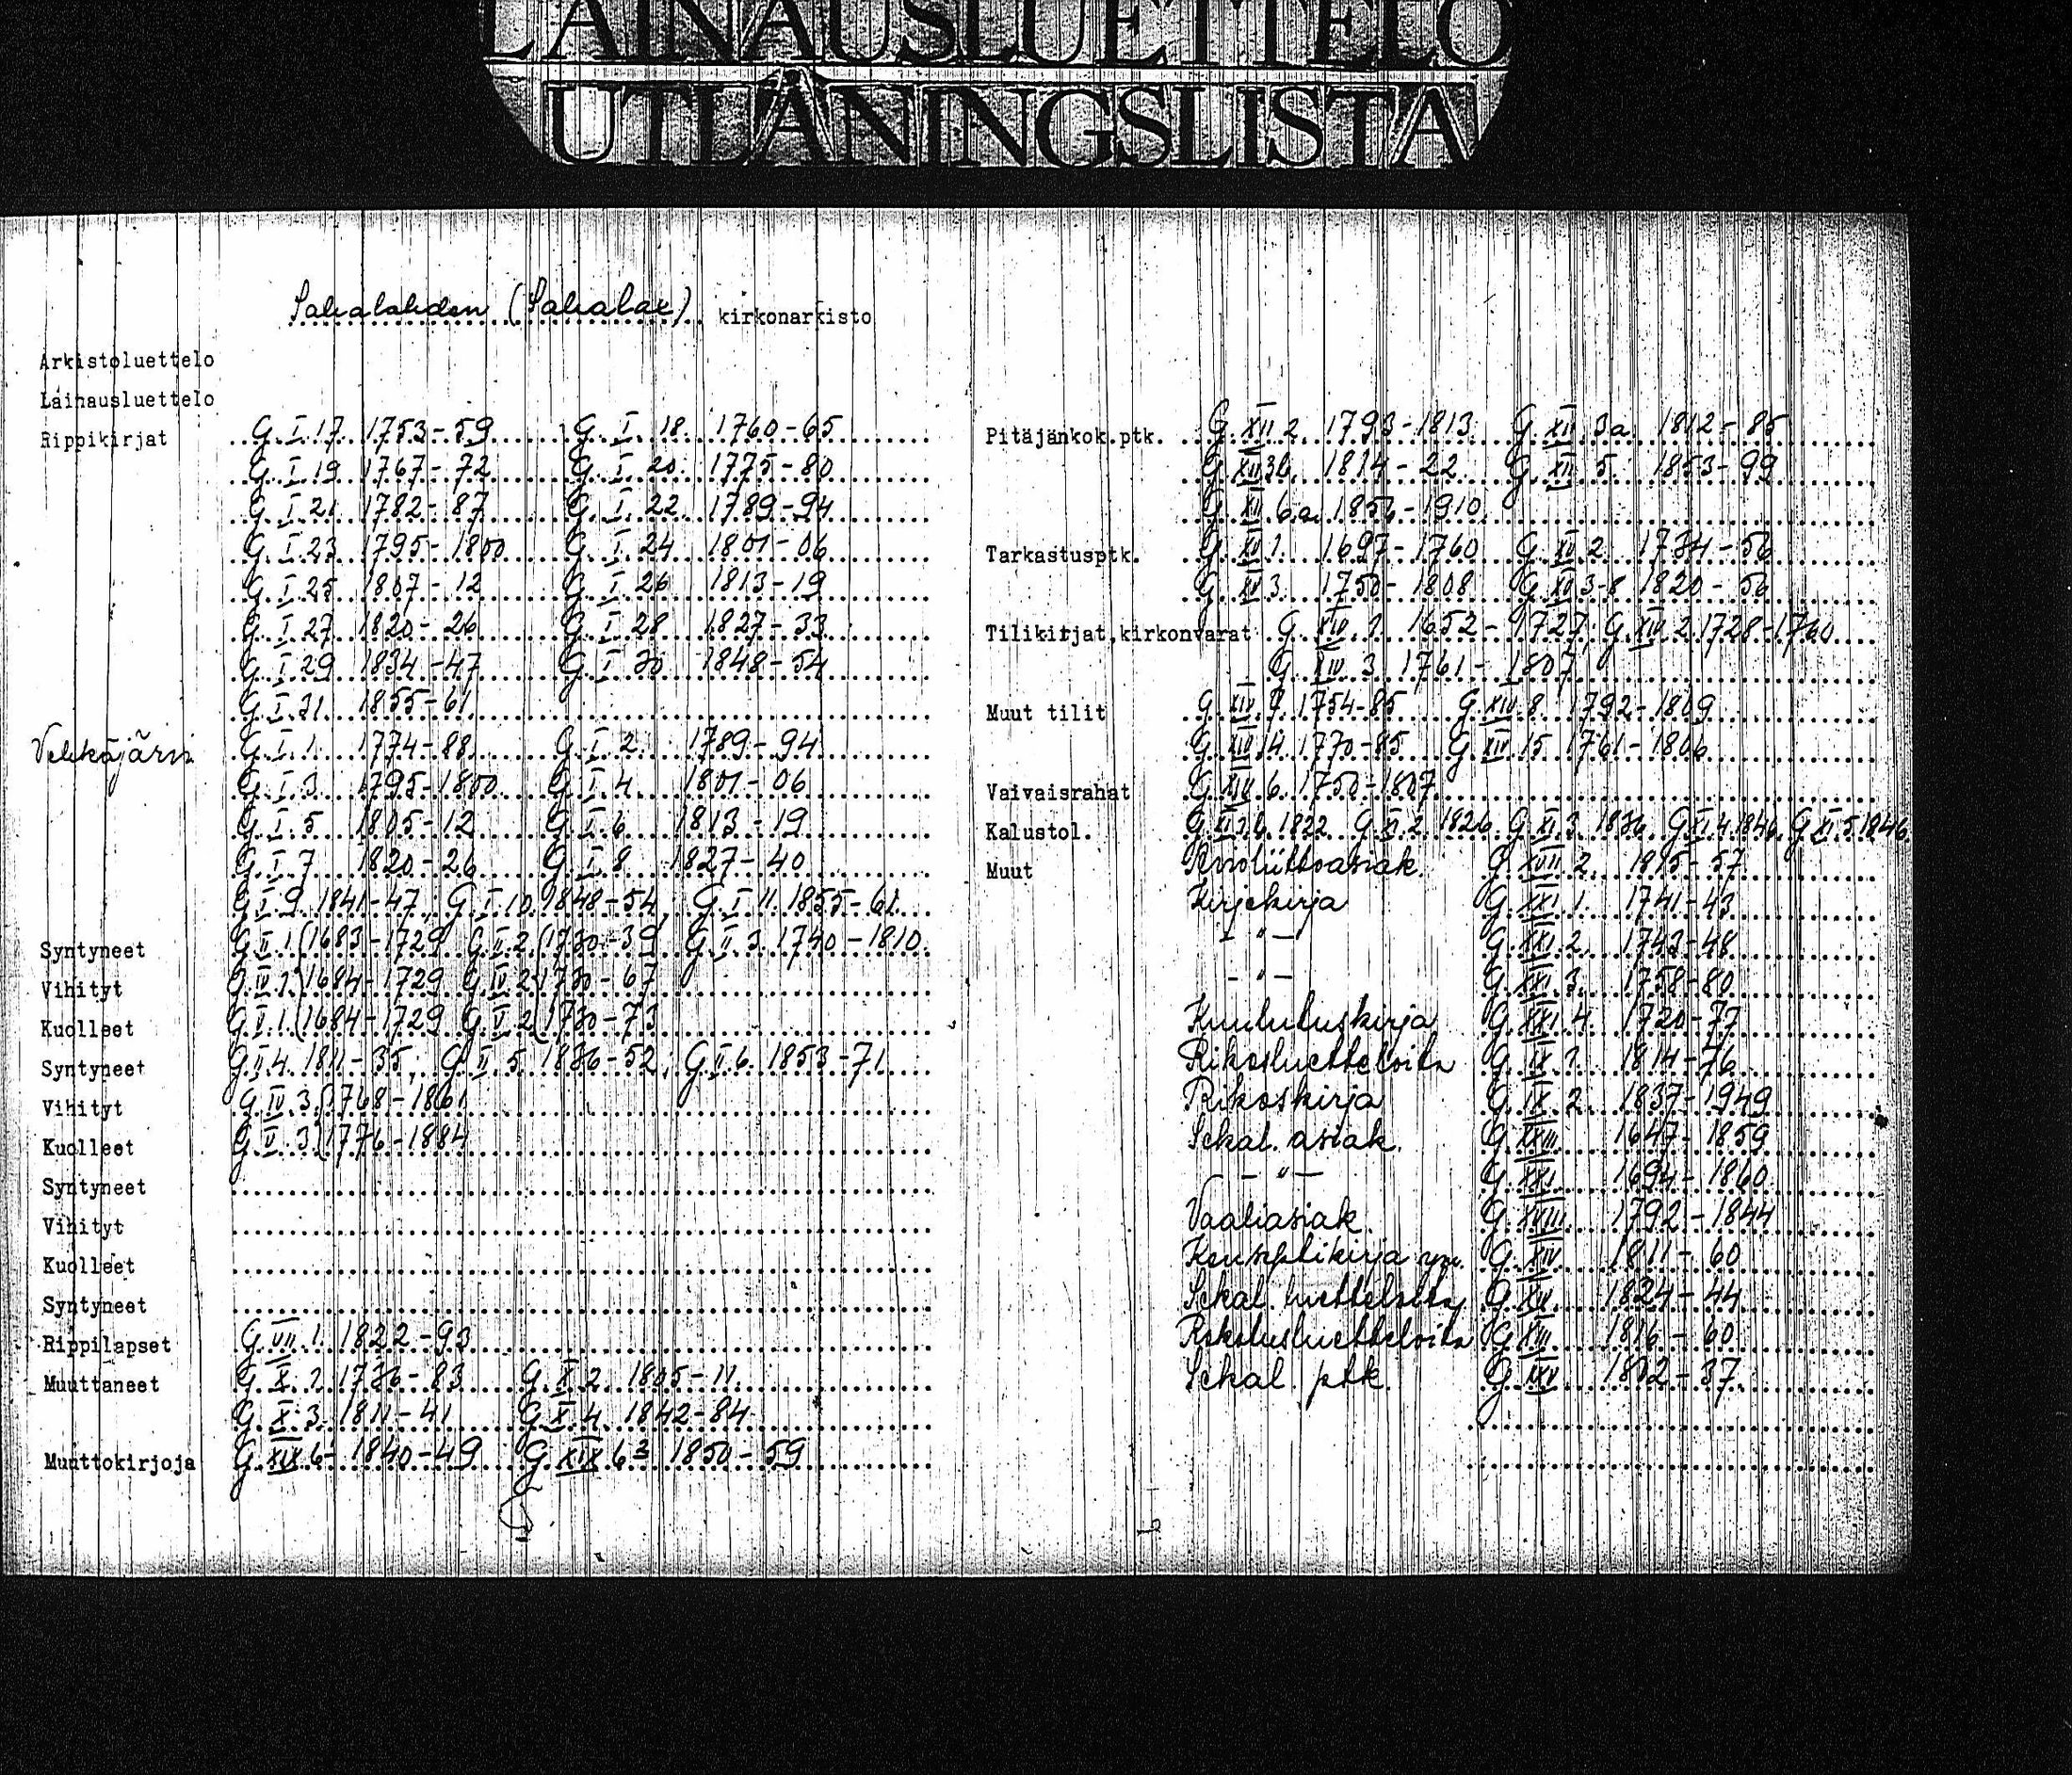 LAINAUSLUETTELO
UTLÅNINGSLISTA
Sahalahden (Sahalax) kirkonarkisto
Arkistoluettelo
Lainausluettelo
Rippikirjat G I 17 1753-59 G I 18 1760-65
G I 19 1767-72 G I 20 1775-80
G I 21 1782-87 G I 22 1789-94
G I 23 1795-1800 G I 24 1801-06
G I 25 1807-12 G I 26 1813-19
G I 27 1820-26 G I 28 1827-33
G I 29 1834-47 G I 30 1848-54
G I 31 1855-61
G I 1 1774-88 G I 2 1789-94
G I 3 1795-1800 G I 4 1801-06
G I 5 1805-12 G I 6 1813-19
G I 7 1820-26 G I 8 1827-40
G I 9 1841-47, G I 10 1848-54, G I 11 1855-61
Syntyneet G II 1 (1683-1729 G II 2 (1730-39 G II 3 1740-1810
Vihityt G IV 1 (1684-1729 G IV 2 (1730-67
Kuolleet G V 1 (1684-1729 G V 2 (1730-73
Syntyneet G II 4 1811-35, G II 5 1836-52, G II 6 1853-71
Vihityt G IV 3 (1768-1861
Kuolleet G V 3 (1776-1884
Syntyneet
Vihityt
Kuolleet
Syntyneet
Rippilapset G VII 1 1822-93
Muuttaneet G X 1 1736-83 G X 2 1805-11
G X 3 1811-41 G X 4 1842-84
Muuttokirjoja G XIX 6- 1840-49 G XIX 63 1850-59
Pitäjänkok.ptk. G XII 2 1793-1813 G XII 3a 1812-85
G XII 3b 1814-22 G XII 5 1853-99
G XII 6a 1856-1910
Tarkastusptk. G XV 1 1697-1760 G XV 2 1734-56
G XV 3 1750-1808 G XV 3-8 1820-56
Tilikirjat,kirkonvarat G XIV 1 1652-1727, G XIV 2 1728-1760
G XIV 3 1761-1807
Muut tilit G XIV 7 1754-85 G XIV 8 1792-1809
G XIV 14 1770-85 G XIV 15 1761-1806
Vaivaisrahat G XIV 6 1750-1807
Kalustol. G XI 1b 1822 G XI 2 1826 G XI 3 1836 G XI 4 1846 G XI 5 1846
Muut Avioliittoasiak. G XVII 2 1815-57
Kirjekirja G XXI 1 1741-43
- " - G XXI 2 1743-48
- " - G XXI 3 1758-80
Kuulutuskirja G XXI 4 1720-77
Rikosluetteloita G IX 1 1814-76
Rikoskirja G IX 2 1837-1949
Sekal. asiak. G XXIII 1647-1859
- " - G XXI 1694-1860
Vaaliasiak. G XVIII 1792-1844
Konseptikirja ym. G XIV 1811-60
Sekal. luetteloita G XV 1824-44
Rokotusluetteloita G XIII 1816-60
Sekal. ptk. 1802-37